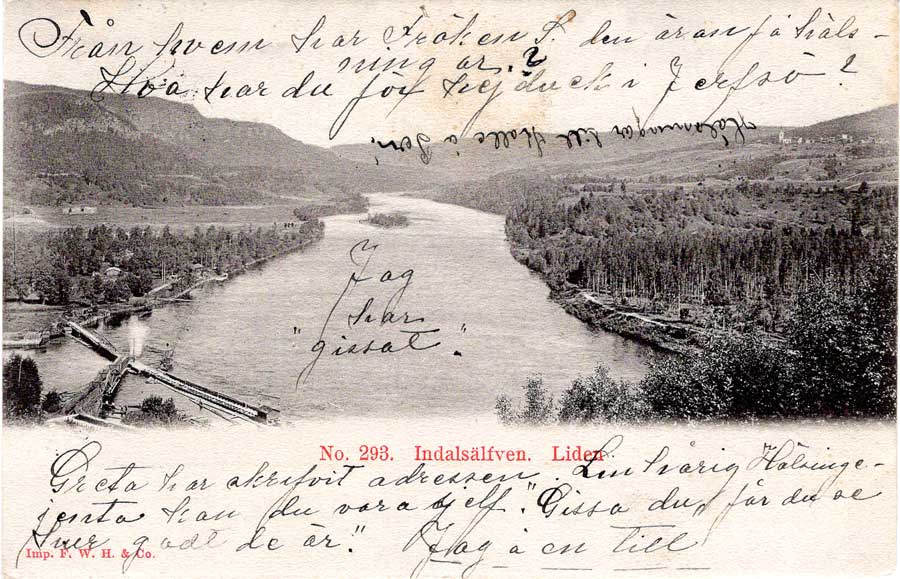 Från hvem har Fröken S. den äran få häls-
ning är?
Hva har du för hejduck i Jerfsö?
Hälsningar till Kalle å
"Jag
har
gissat"
No. 293. Indalsälfven. Liden
Greta har skrifvit adressen. "Linhårig Hälsinge-
jenta kan du vara sjelf". "Gissa du, får du se
hur godt de är". Jag å en till
Imp. F. W. H. & Co.